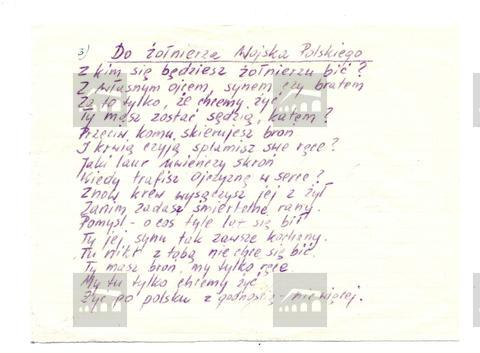 3) Do żołnierza Wojska Polskiego
Z kim się będziesz żołnierzu bić?
Z własnym ojcem, synem czy bratem
Za to tylko, że chcemy żyć
Ty masz zostać sędzią, katem?
Przeciw komu skierujesz broń
I krwią czyją splamisz swe ręce?
Jaki laur uwieńczy skroń
Kiedy trafisz ojczyznę w serce?
Znów krew wysączysz jej z żył
Zanim zadasz śmiertelne rany.
Pomyśl - o coś tyle lat się bił
Ty jej synu tak zawsze kochany.
Tu nikt z tobą nie chce się bić.
Ty masz broń, my tylko ręce
My tu tylko chcemy żyć
Żyć po polsku z godnością - nic więcej.